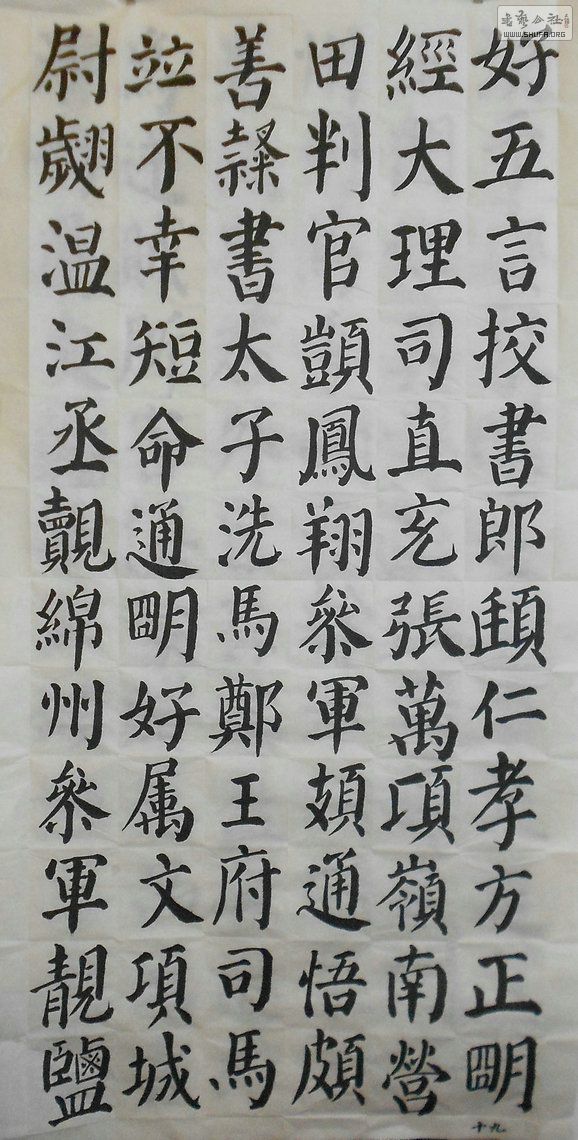 好五言挍書郎頲仁孝方正朙
經大理司直充張萬頃嶺南營
田判官顗鳳翔叅軍頗通悟頗
善隸書太子洗馬鄭王府司馬
竝不幸短命通朙好属文項城
尉翽温江丞覿綿州叅軍靚鹽
十九
書法公社
WWW.SHUFA.ORG